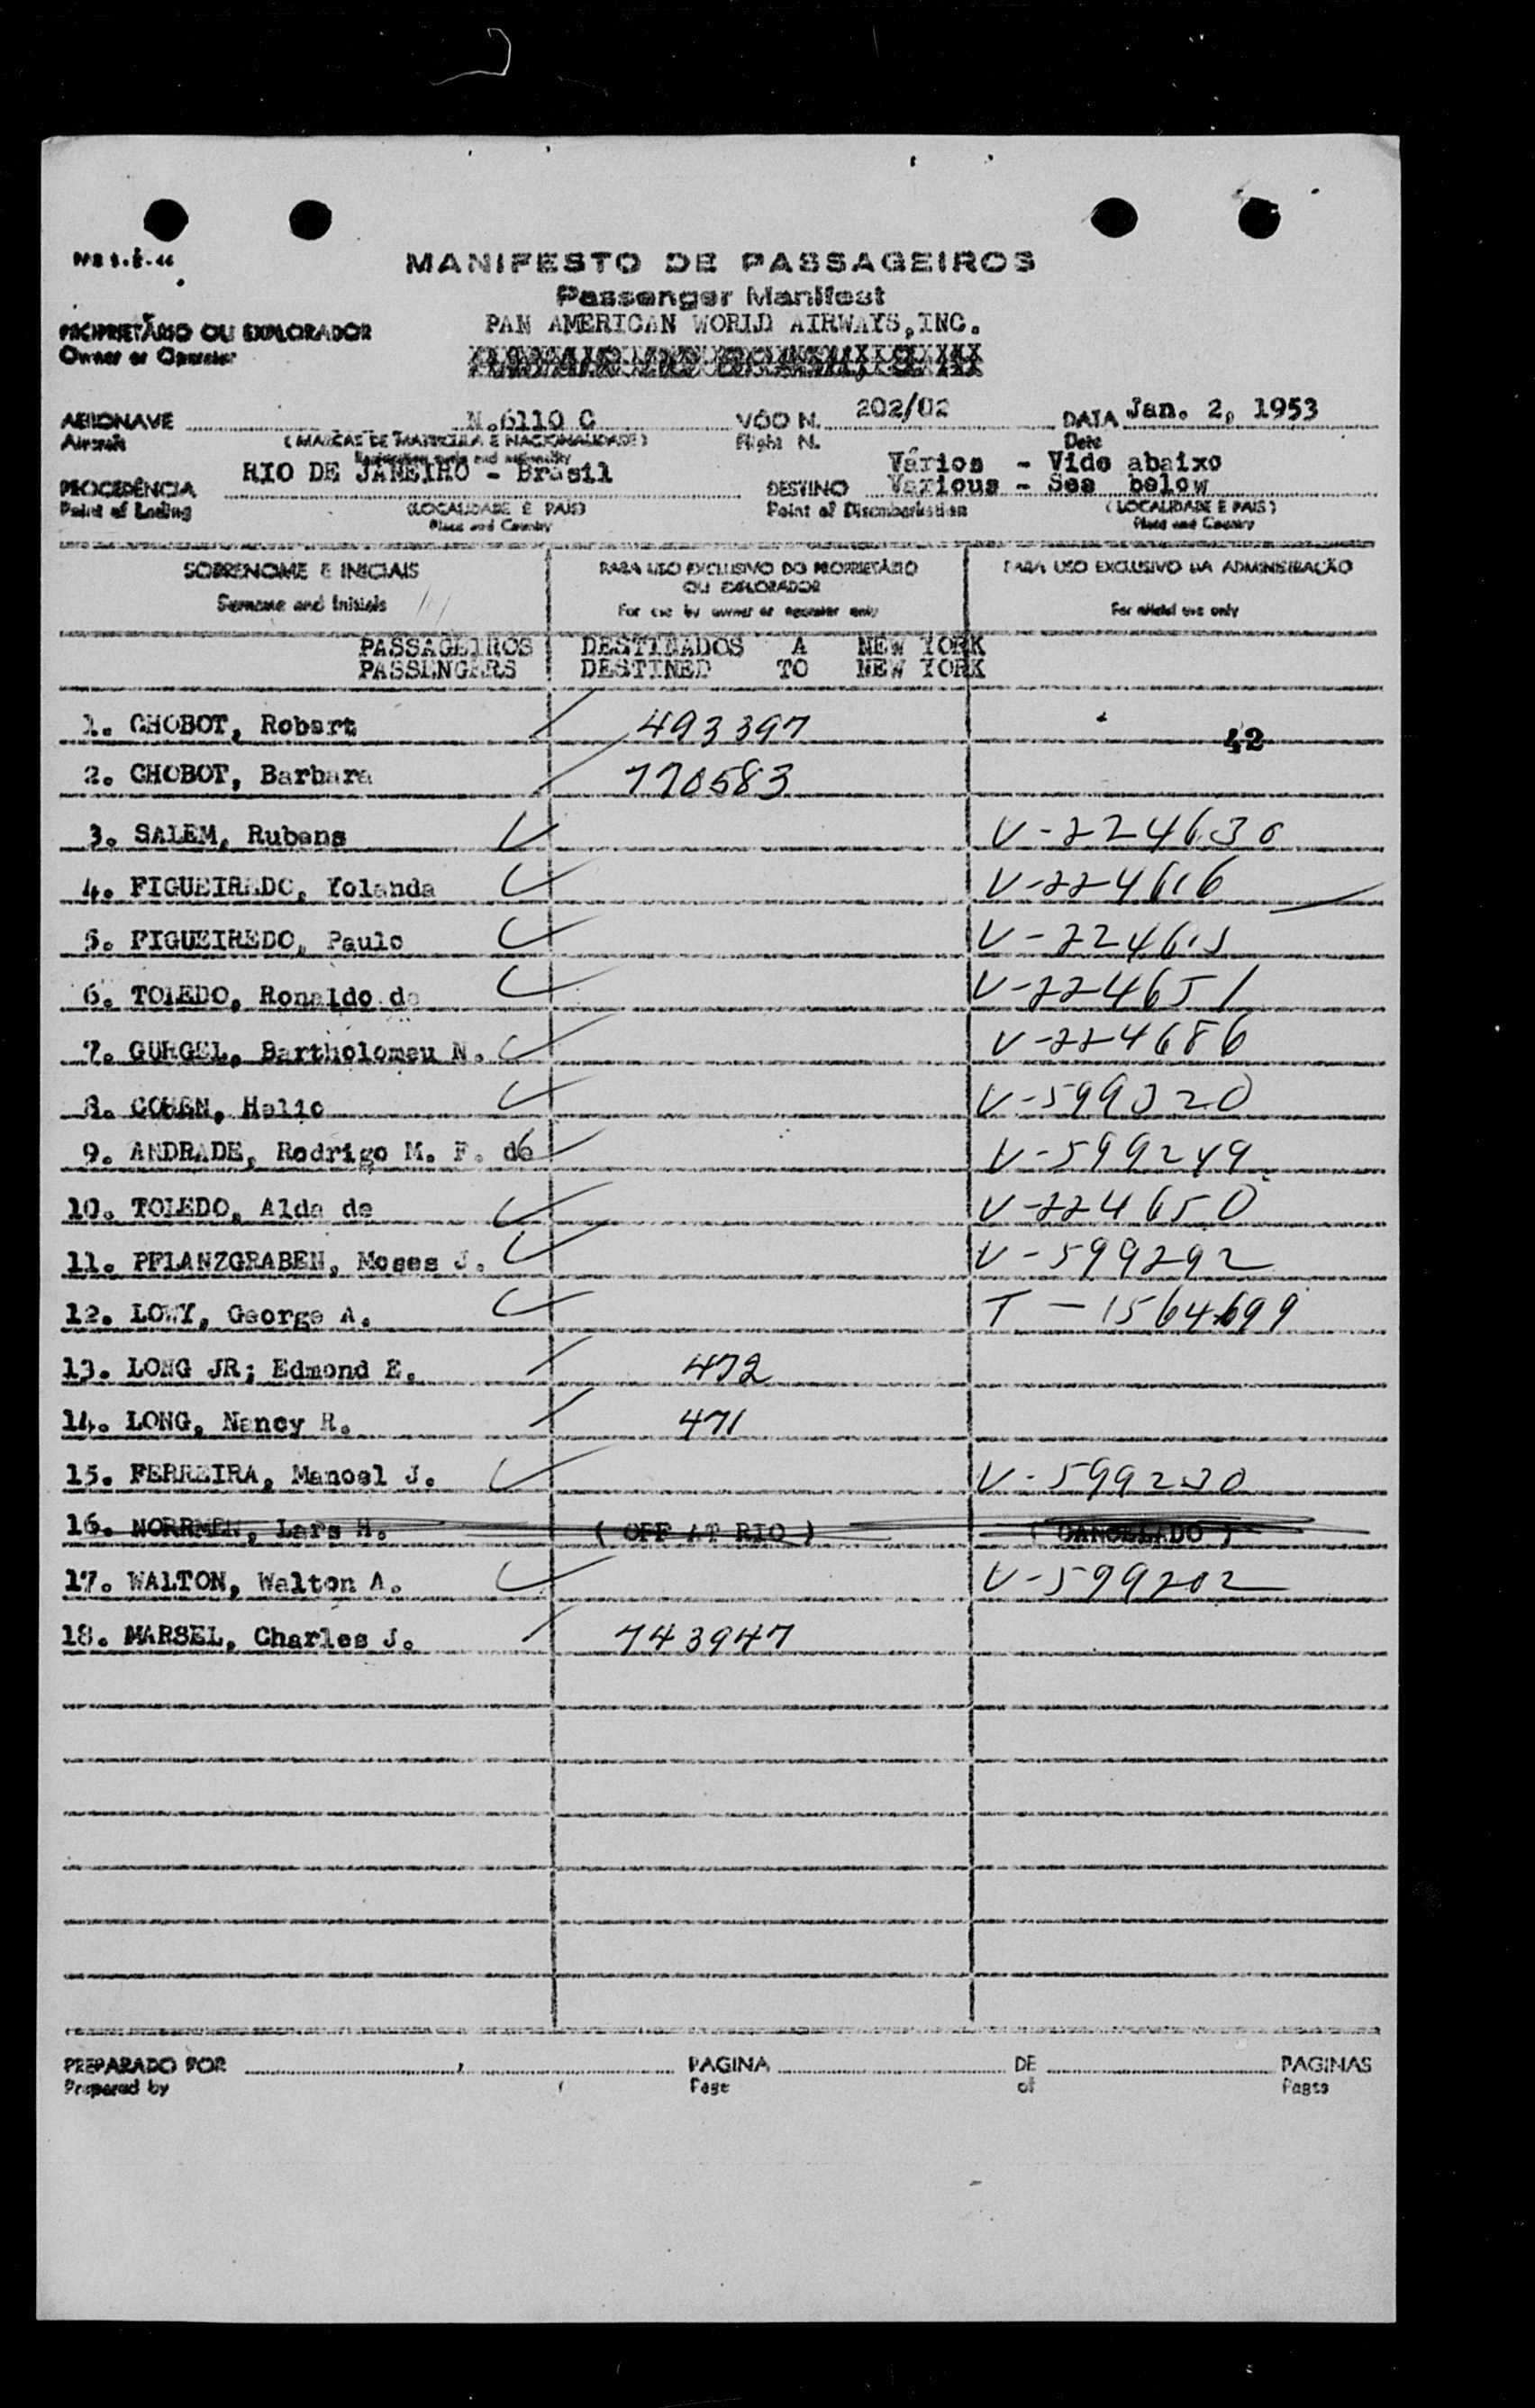 MANIFESTO DE PASSAGEIROS
Passenger Manifest
PROPRIETÁRIO OU EXPLORADOR
Owner or Operator
PAN AMERICAN WORLD AIRWAYS, INC.
AERONAVE N.6110 C VÔO N. 202/02 DATA Jan. 2, 1953
Aircraft (MARCAS DE MATRICULA E NACIONALIDADE) Flight N. Date
Registration marks and nationality
PROCEDÊNCIA RIO DE JANEIRO - Brasil DESTINO Vários - Vide abaixo
Various - See below
Point of Lading (LOCALIDADE E PAIS) Point of Disembarkation (LOCALIDADE E PAIS)
Place and Country Place and Country
SOBRENOME E INICIAIS PARA USO EXCLUSIVO DO PROPRIETÁRIO OU EXPLORADOR PARA USO EXCLUSIVO DA ADMINISTRAÇÃO
Surname and Initials For use by owner or operator only For official use only
PASSAGEIROS DESTINADOS A NEW YORK
PASSENGERS DESTINED TO NEW YORK
1. CHOBOT, Robert 493397 42
2. CHOBOT, Barbara 770583
3. SALEM, Rubens V-224630
4. FIGUEIREDO, Yolanda V-224616
5. FIGUEIREDO, Paulo
6. TOLEDO, Ronaldo de V-224651
7. GURGEL, Bartholomeu N. V-224686
8. COHEN, Helio V-599320
9. ANDRADE, Rodrigo M. F. de V-599249
10. TOLEDO, Alda de V-224650
11. PFLANZGRABEN, Moses J. V-599292
12. LOWY, George A. T-1564699
13. LONG JR; Edmond E. 472
14. LONG, Nancy R. 471
15. FERREIRA, Manoel J. V-599230
16. NORRMEN, Lars H. ( OFF AT RIO ) ( CANCELADO )
17. WALTON, Walton A. V-599202
18. MARSEL, Charles J. 743947
PREPARADO POR PAGINA DE PAGINAS
Prepared by Page of Pages